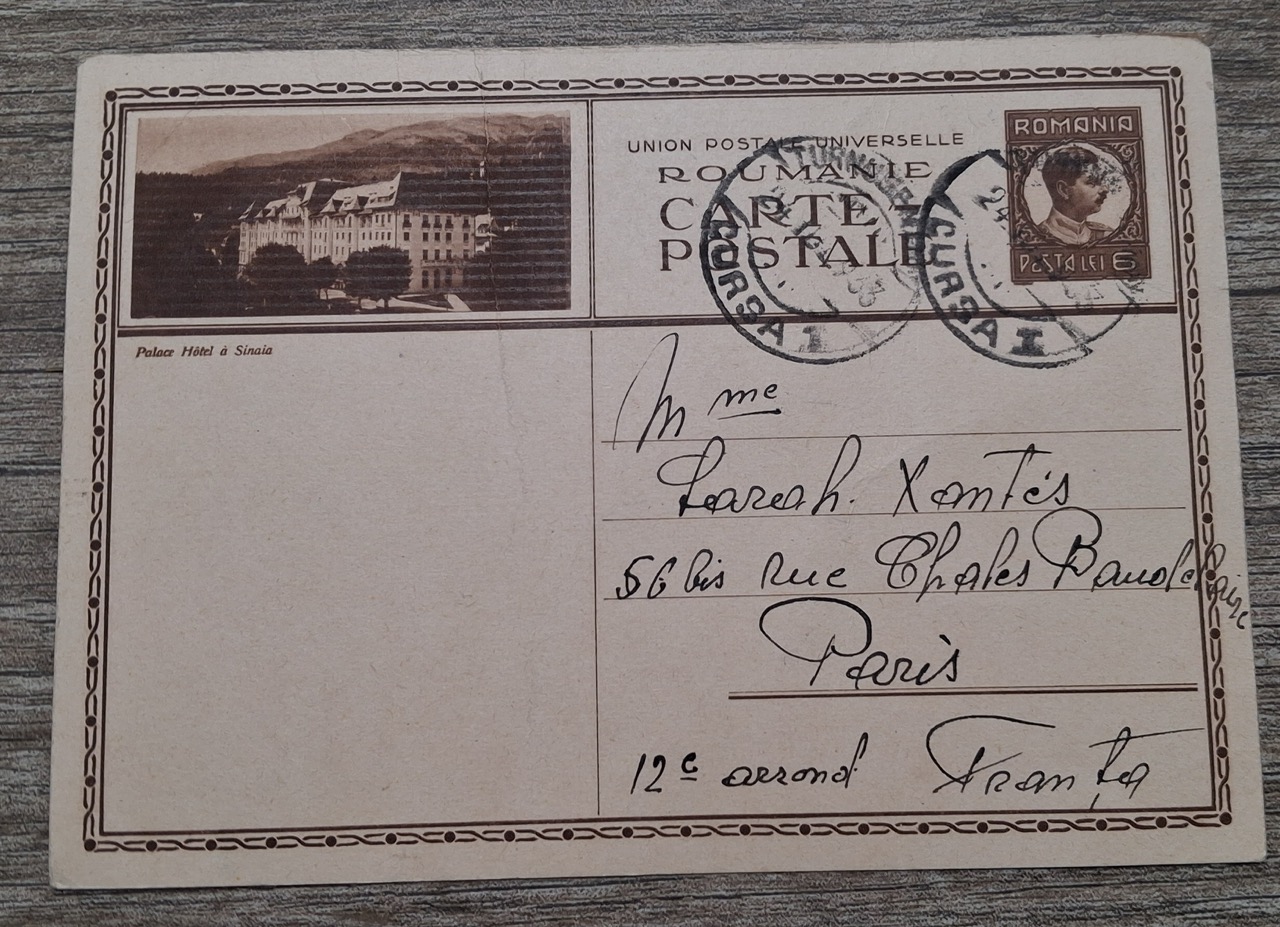 UNION POSTALE UNIVERSELLE
ROUMANIE
CARTE POSTALE
ROMANIA
POSTA LEI 6
CURSA I
CURSA I
Palace Hôtel à Sinaia
Mme
Sarah. Xantés
56 bis Rue Chales Baudelaire
Paris
12e arrond Franța